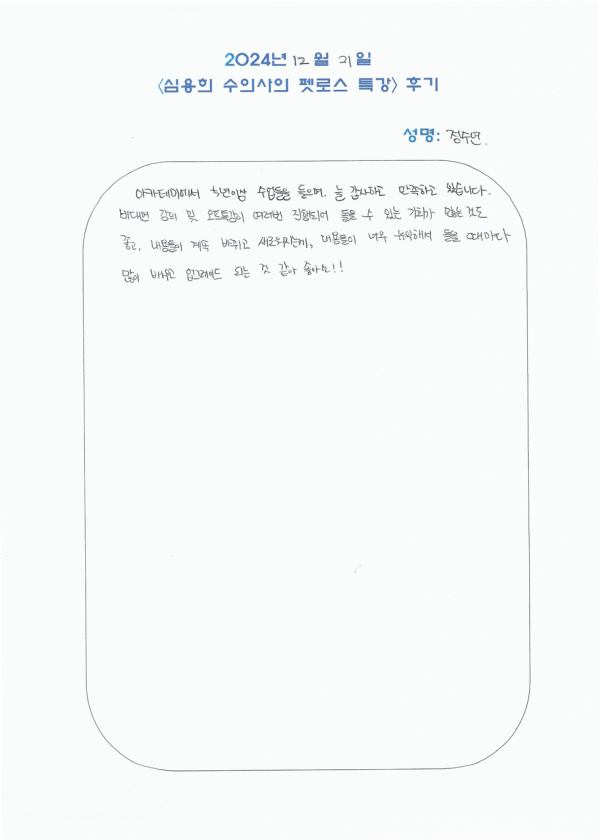 2024년 12월 21일
<심용희 수의사의 펫로스 특강> 후기
성명: 정수연.
아카데미에서 1년이상 수업들을 들으며, 늘 감사하고 만족하고 있습니다.
비대면 강의 및 오프특강이 여러번 진행되어 들을 수 있는 기회가 많은것도
좋고, 내용들이 계속 바뀌고 새로워지는게, 내용들이 너무 유익해서 들을 때마다
많이 배우고 업그레이드 되는 것 같아 좋아요!!